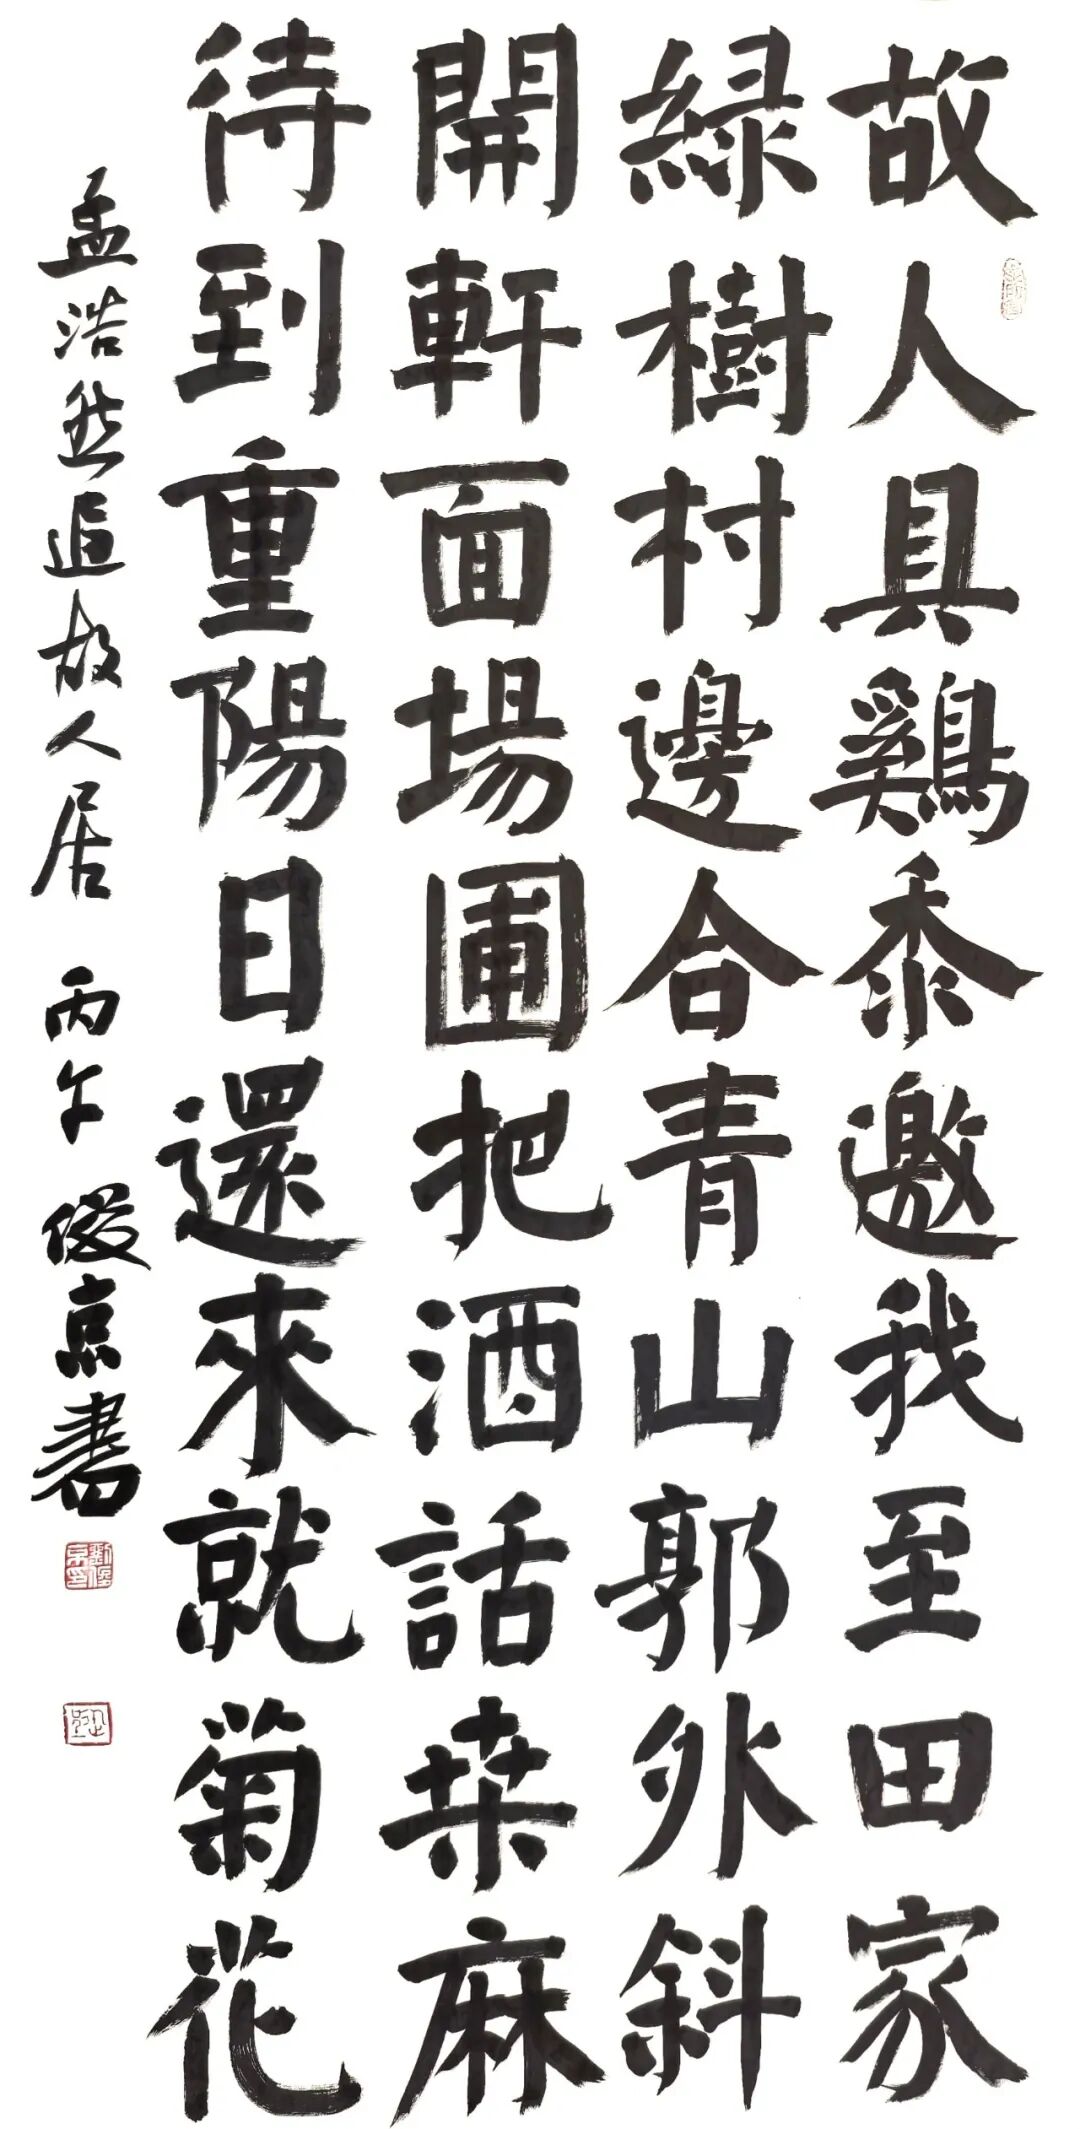 故人具鷄黍邀我至田家
緑樹村邊合青山郭外斜
開軒面場圃把酒話桒麻
待到重陽日還來就菊花
孟浩然過故人居 丙午 俊京書